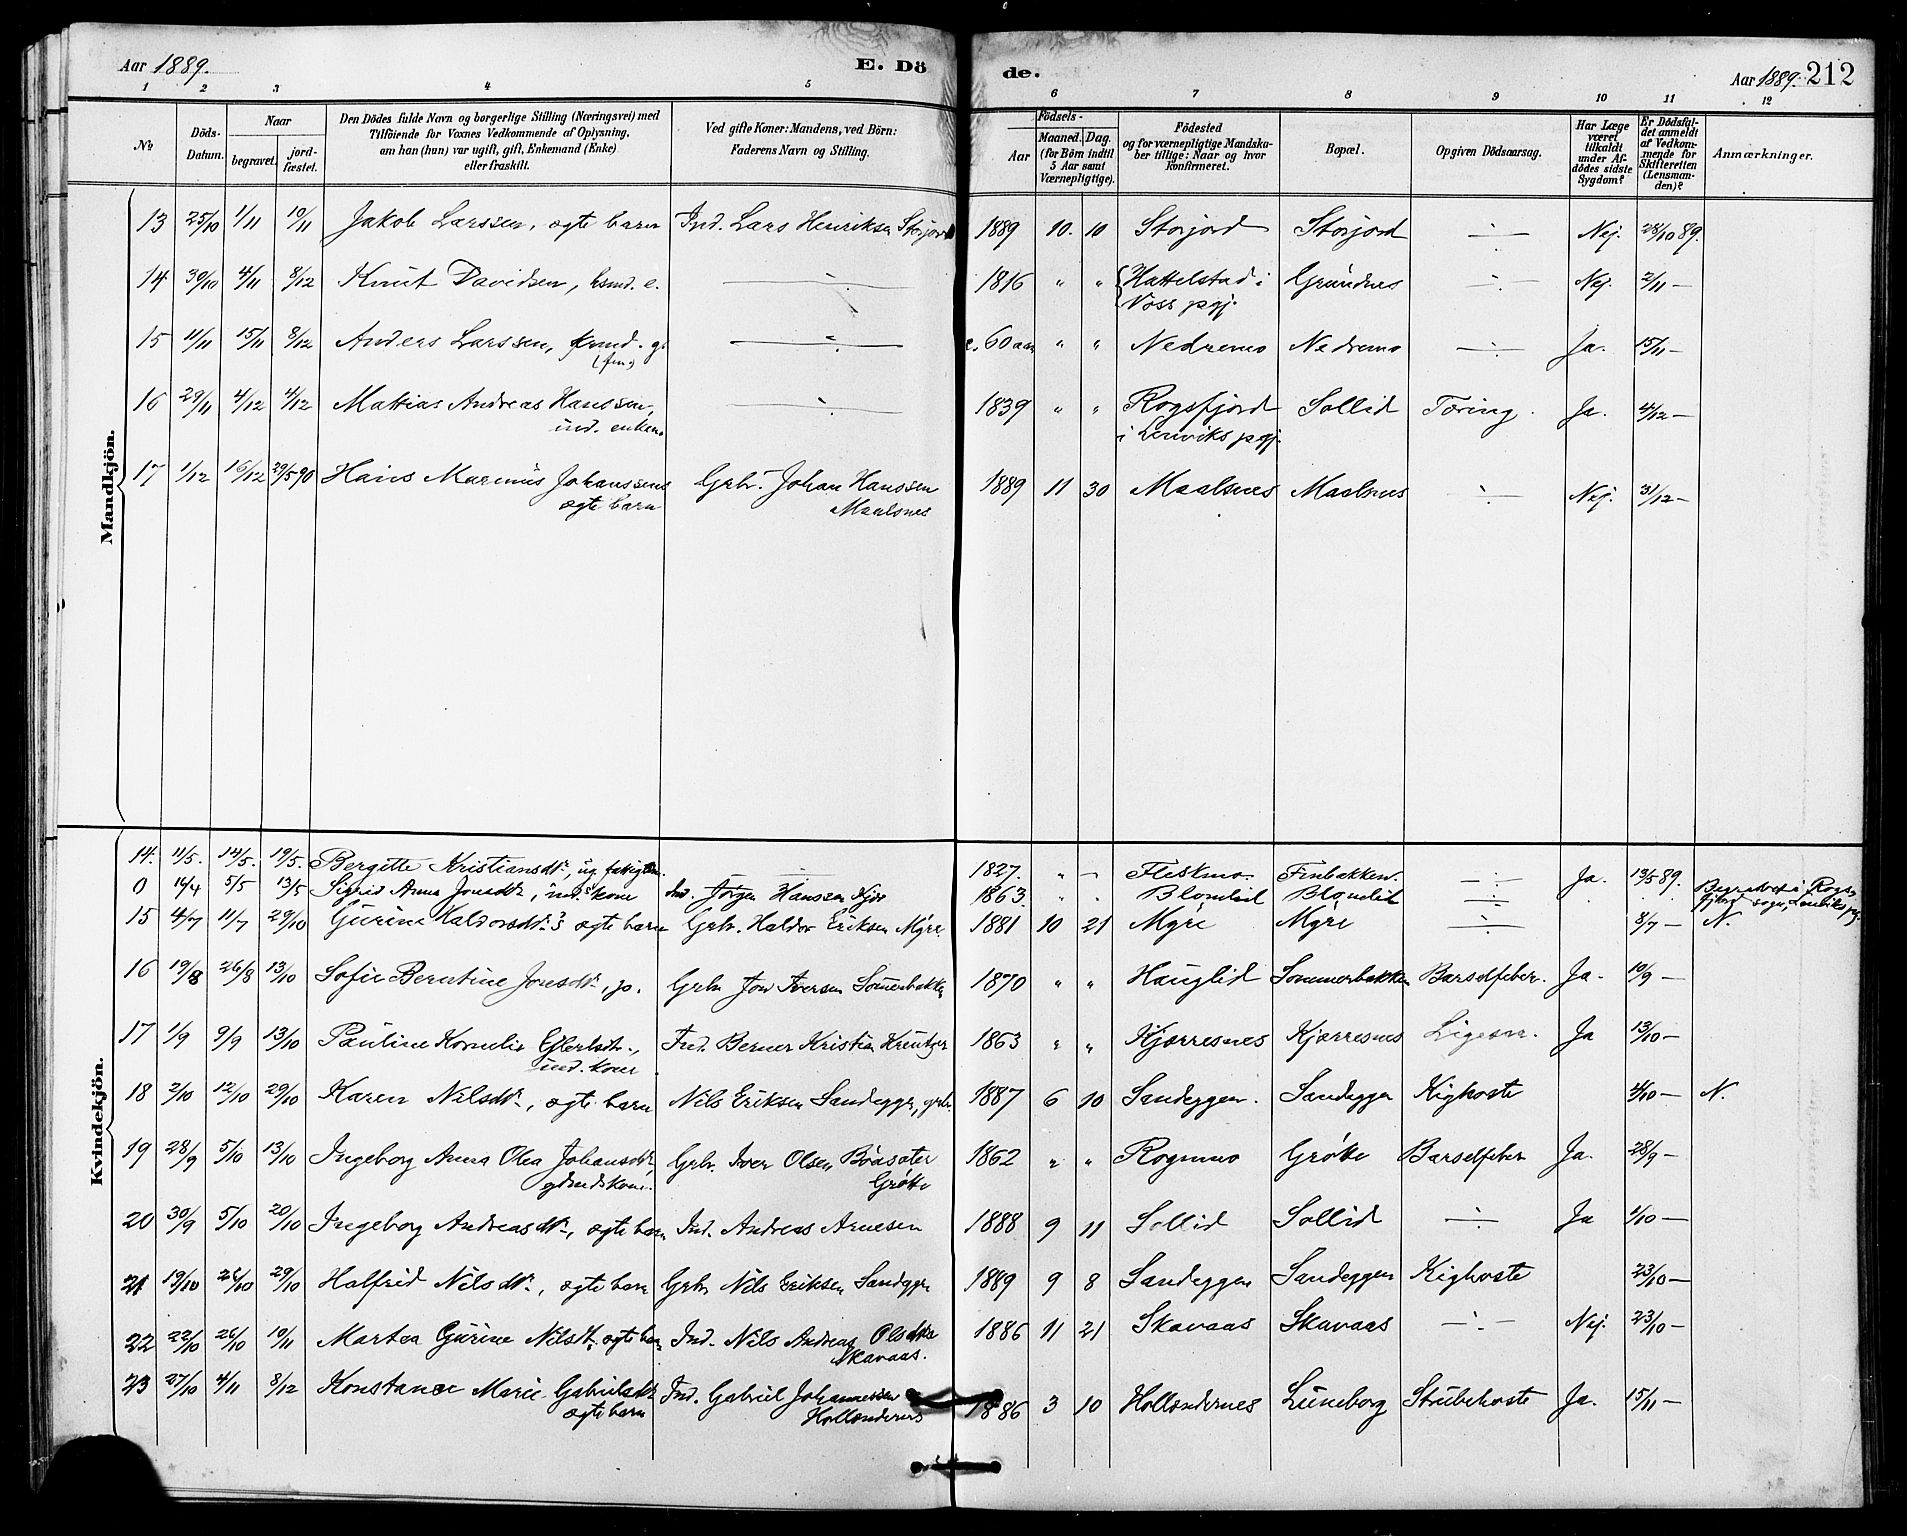 Aar 1889.
E. Dö de.
Aar 1889. 212
1 2 3 4 5 6 7 8 9 10 11 12
No
Döds-Datum.
Naar
begravet.
jord-fæstet.
Den Dödes fulde Navn og borgerlige Stilling (Næringsvei) med
Tilföiende for Voxnes Vedkommende af Oplysning,
om han (hun) var ugift, gift, Enkemand (Enke)
eller fraskilt.
Ved gifte Koner: Mandens, ved Börn:
Faderens Navn og Stilling.
Födsels-
Aar
Maaned. Dag.
(for Börn indtil
5 Aar samt
Værnepligtige).
Födested
og for værnepligtige Mandska-
ber tillige: Naar og hvor
konfirmeret.
Bopæl.
Opgiven Dödsaarsag.
Har Læge
været
tilkaldt
under Af-
dödes sidste
Sygdom?
Er Dödsfal-
det anmeldt
af Vedkom-
mende for
Skifteretten
(Lensman-
den)?
Anmærkninger.
Mandkjön.
13 25/10 1/11 10/11 Jakob Larssen, ægte barn Ind. Lars Henriksen Storjord 1889 10. 10 Storjord Storjord -:- Nej. 28/10 89.
14 30/10 4/11 8/12 Knut Davidsen, hsmd. e. -:- 1816 " " Hattelstad i Grundnes -:- Nej. 2/11 -
Voss pgj.
15 11/11 15/11 8/12 Anders Larssen, g. -:- c. 60 aar " " Nedremo Nedremo -:- Ja. 15/11 -
16 29/11 4/12 4/12 Mattias Andreas Hanssen, -:- 1839 " " Rogsfjord Sollid Tæring. Ja. 4/12 -
ind. enkem.
i Lenviks pgj.
17 1/12 16/12 29/5 90 Hans Marinus Johanssen Grbr. Johan Hanssen 1889 11 30 Maalsnes Maalsnes -:- Nej. 31/12 -
ægte barn
Maalsnes
Kvindekjön.
14. 11/5. 14/5. 19/5. Bergitte Kristiansdtr., ug. 1827. " - Fleskmo. Finbakken. -:- Ja. 13/5 89.
0 16/4 5/5 13/5 Sigrid Anna Jonsdtr., inds. kone Ind. Jørgen Hanssen 1863. " " Blomlid Blomlid -:- Begravet i Rogs-
fjord sogn, Lenviks pgj.
15 4/7 11/7 29/10 Gurine Haldorsdtr. ægte barn Grbr. Haldor Eriksen Myre 1881 10 21 Myre Myre -:- 8/7 - N.
16 19/8 26/8 13/10 Sofie Berntine Jonsdtr., p. Grbr. Jon Iversen Sommerbakken 1870 " " Hauglid Sommerbakken Barselfeber. Ja. 10/9 -
17 1/9 9/9 13/10 Pauline Kornelia Ind. Berner Kristian Kreutzer 1863 " " Kjærresnes Kjærresnes Ja 13/10 -
ind. kone
18 2/10 12/10 29/10 Karen Nilsdtr., ægte barn Nils Eriksen Sandeggen, grbr. 1887 6 10 Sandeggen. Sandeggen Kighoste 4/10 - N.
19 28/9 5/10 13/10 Ingeborg Anna Olea Johansdtr., Grbr. Iver Olsen 1862 " " Rognmo Grøtte Barselfeber Ja. 28/9 -
gdmdskone.
Grøtte
20 30/9 5/10 20/10 Ingeborg Andreasdtr., ægte barn Ind. Andreas Arnesen 1888 9 11 Sollid Sollid -:- Ja 1/10 -
21 19/10 26/10 29/10 Halfrid Nilsdtr., ægte barn Grbr Nils Eriksen Sandeggen 1889 9 8 Sandeggen Sandeggen Kighoste 23/10 -
22 22/10 26/10 10/11 Martea Gurine Nilsdtr. ægte barn Ind. Nils Andreas Olsen 1886 11 21 Skavaas Skavaas -:- Nej. 23/10 -
Skavaas.
23 27/10 4/11 8/12 Konstance Marie Gabrielsdtr. Ind. Gabriel Johannessen 1886 3 10 Hollændernes Luneborg Strubehoste Ja. 15/11 -
ægte barn
Hollændernes